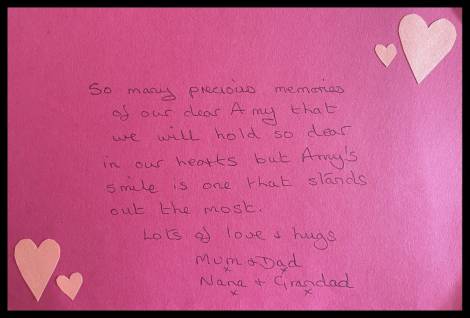 So many precious memories
of our dear Amy that
we will hold so dear
in our hearts but Amy's
smile is one that stands
out the most.
Lots of love & hugs
Mum & Dad
x x
Nana + Grandad
x x